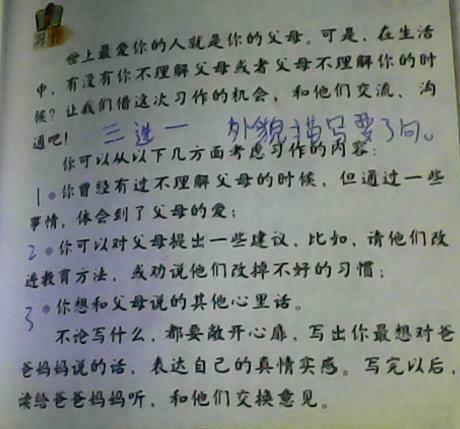 习作
世上最爱你的人就是你的父母。可是，在生活
中，有没有你不理解父母或者父母不理解你的时
候？让我们借这次习作的机会，和他们交流、沟
通吧！
三选一 外貌描写要了句。
你可以从以下几方面考虑习作的内容：
1 你曾经有过不理解父母的时候，但通过一些
事情，体会到了父母的爱；
2 你可以对父母提出一些建议，比如，请他们改
进教育方法，或劝说他们改掉不好的习惯；
3 你想和父母说的其他心里话。
不论写什么，都要敞开心扉，写出你最想对爸
爸妈妈说的话，表达自己的真情实感。写完以后，
读给爸爸妈妈听，和他们交换意见。